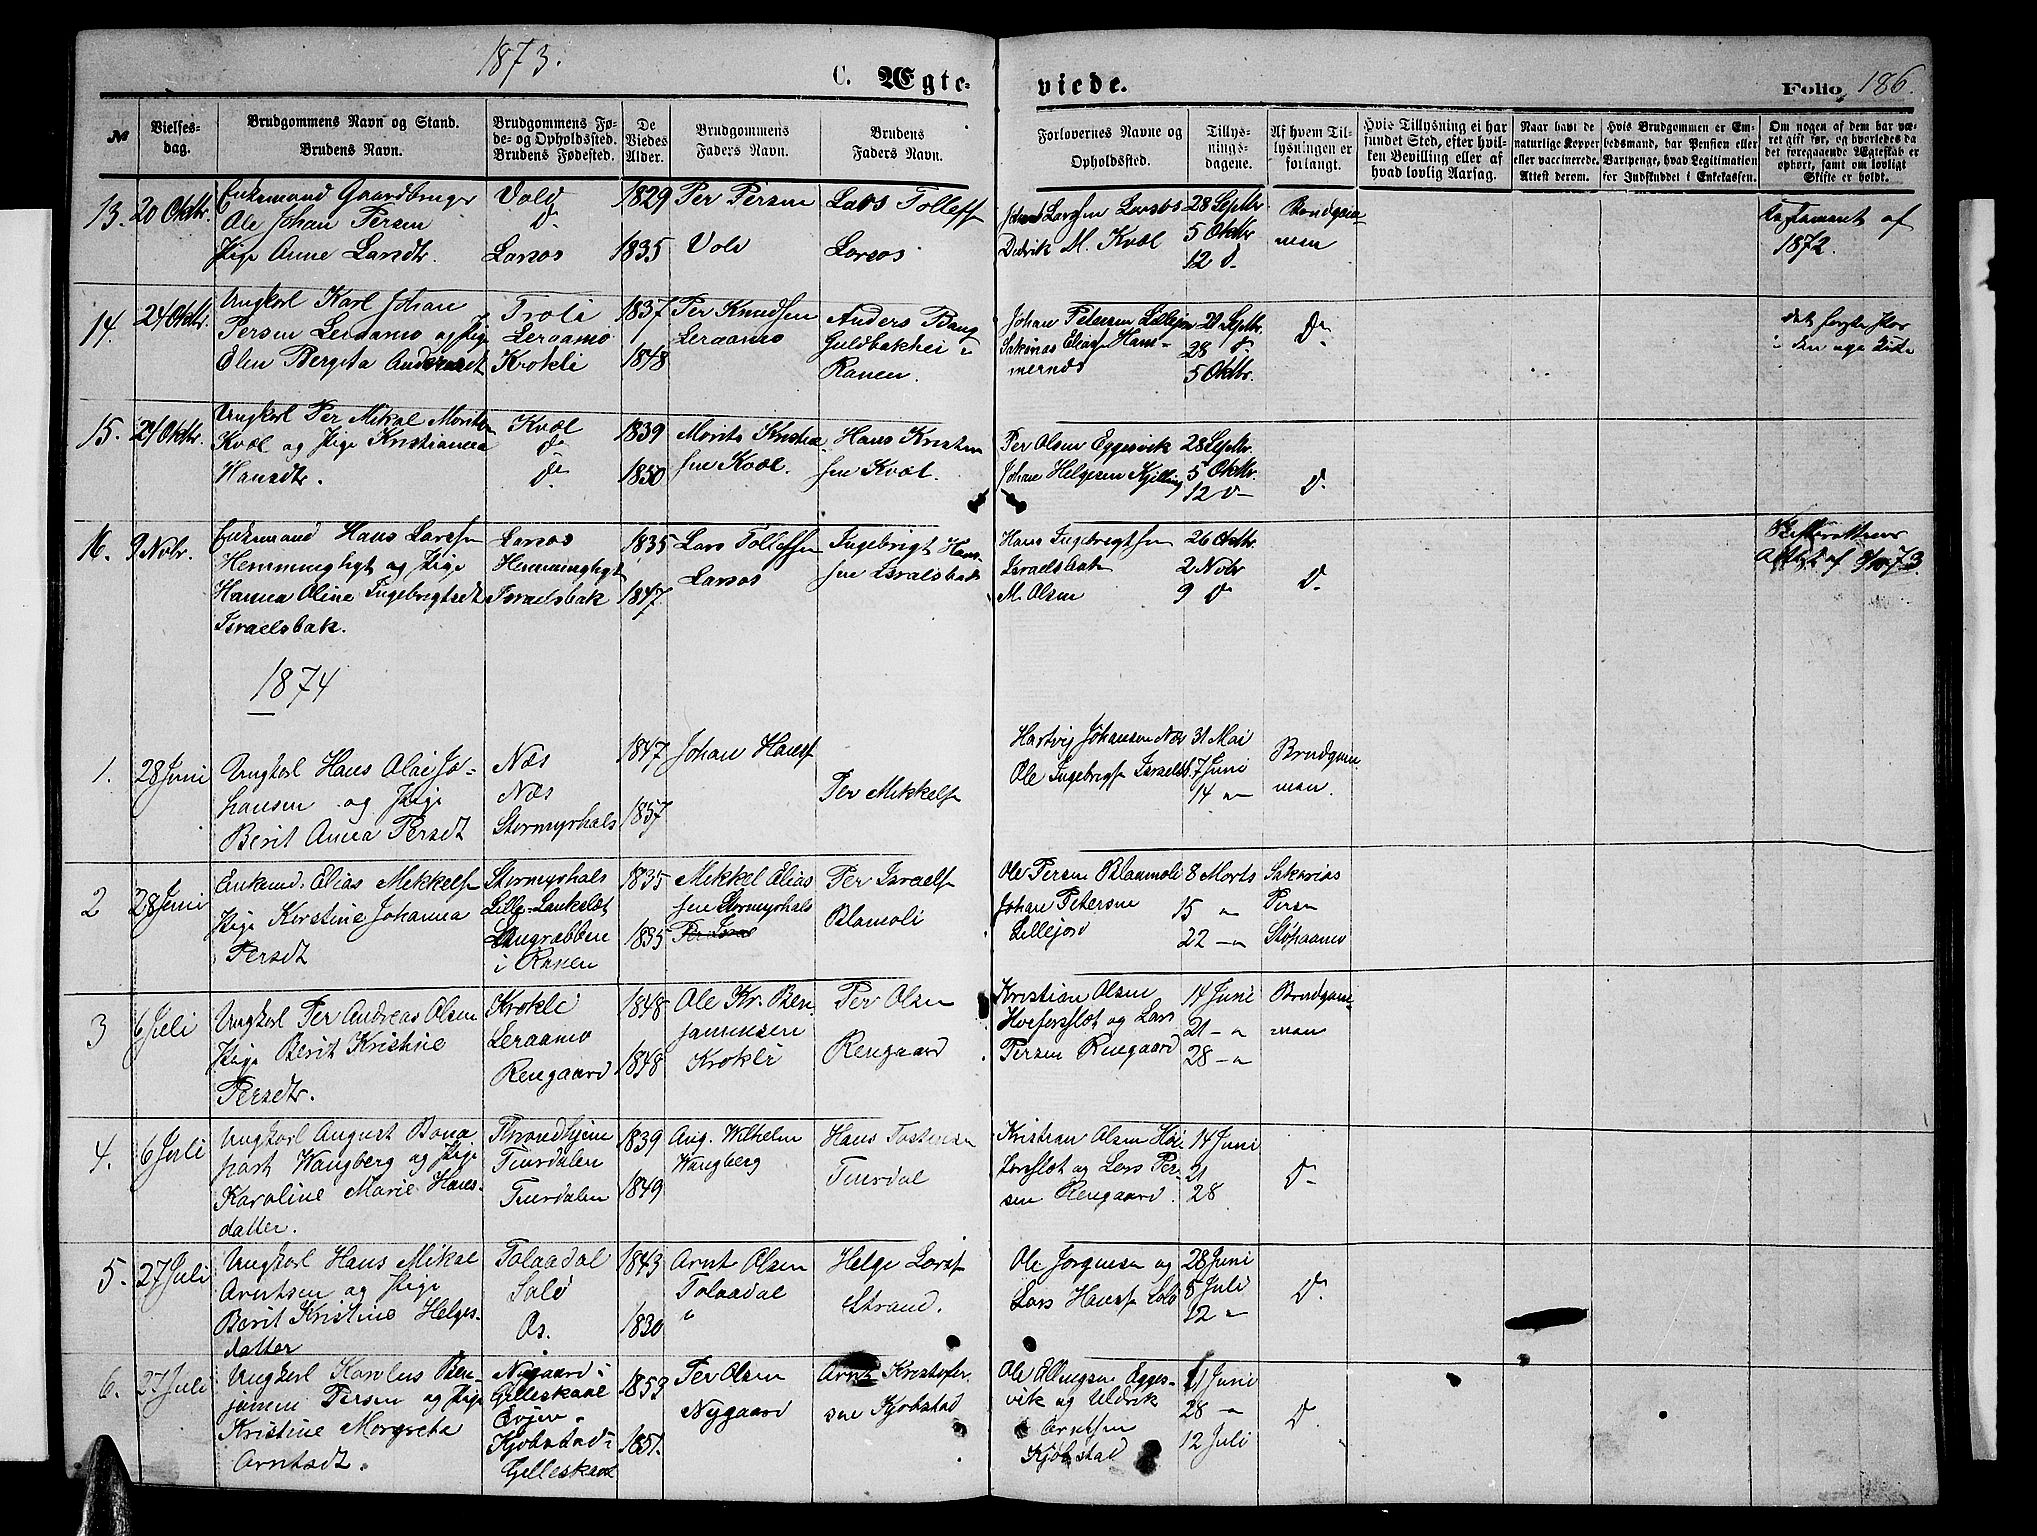 1873.
C. Ægte-
viede.
Folio 186.
№
Vielses-
dag.
Brudgommens Navn og Stand.
Brudens Navn.
Brudgommens Fø-
de- og Opholdssted.
Brudens Fødested.
De
Viedes
Alder.
Brudgommens
Faders Navn.
Brudens
Faders Navn.
Forlovernes Navne og
Opholdssted.
Tillys-
nings-
dagene.
Af hvem Til-
lysningen er
forlangt.
Hvis Tillysning ei har
fundet Sted, efter hvil-
ken Bevilling eller af
hvad lovlig Aarsag.
Naar havt de
naturlige Kopper
eller vaccinerede.
Attest derom.
Hvis Brudgommen er Em-
bedsmand, har Pension eller
Vartpenge, hvad Legitimation
for Indskuddet i Enkekassen.
Om nogen af dem har væ-
ret gift før, og hvorledes da
det foregaaende Ægteskab er
ophørt, samt om lovligt
Skifte er holdt.
13. 20 Oktbr.
Enkemand Gaardbruger
Ole Johan Persen
Pige Anne Larsdtr.
Vold
Do
Larsos
1829
1835
Per Persen
Vold
Lars Tollefs
Larsos
Larssen Larsos
Didrik M. Kvæl
28 Septbr
5 Oktbr
12 D-
Brudgom
men
Testament af
1872.
14. 24 Oktbr.
Ungkarl Karl Johan
Persen Leiraamo og Pige
Elen Bergita Andersdt
Troli
Leraamo
Krokli
1837
1848
Per Knudsen
Leraamo
Anders Baug
Guldbakhei i
Ranen.
Johan Petersen Lillejor
Sakarias Elias Ham-
mernes
21 Septbr.
28 D-
5 Oktbr.
Do
det første
i den
15. 24 Oktbr.
Ungkarl Per Mikal Morits
Kvæl og Pige Kristianna
Hansdtr.
Kvæl
Do
Do
1839
1850
Morits Kristia
sen Kvæl.
Hans Kristen
sen Kvæl.
Per Olsen Eggesvik
Johan Helgesen Kjelling
28 Septbr.
5 Oktbr.
12 D-
D-
16. 9 Novbr.
Enkemand Hans Larssen
Hemminghyt og Pige
Hanna Oline Ingebrigtsdt
Israelsbak.
Larsos
Hemminghyt
Israelsbak
1835
1847.
Lars Tollefsen
Larsos
Ingebrigt Hans-
sen Israelsbak
Hans Ingebrigtsen
Israelsbak
M. Olsen
26 Oktbr.
2 Novbr
9 D
D-
Skifterettens
Attest af
1874
1. 28 Juni
Ungkarl Hans Olai Jo-
hansen og Pige
Berit Anna Persdt
Næs
Næs
Stormyrhals
1847
1857
Johan Hanss
Per Mikkels
Hartvig Johansen Næs
Ole Ingebrigts Israelsb.
31 Mai
7 Juni
14 "
Brudgom
men.
2 28 Juni
Enkemd. Elias Mikkels
Pige Kirstine Johanna
Persdt
Stormyrhals
Lille-Lankslet
Langræbben
i Ranen
1835
1835
Mikkel Elias
sen Stormyrhals
Per Israels
Blamoli
Ole Persen Blaamoli
Johan Petersen
Lillejord
8 Marts
15 "
22 "
Sakarias
Persn
Støvraamo
3 6 Juli
Ungkarl Per Andreas Olsen
Pige Berit Kristine
Persdtr.
Krokli
Leraamo
Rengaard
1848
1848
Ole Kr. Ben
jaminsen
Krokli
Per Olsen
Rengaard
Kristian Olsen
Hvefersflot og Lars
Persen Rengaard
14 Juni
21 "
28 "
Brudgom-
men
4. 6 Juli
Ungkarl August Bona
part Wangberg og Pige
Karoline Marie Hans-
datter.
Throndhjem
Tuvdalen
Tuvdalen
1839
1849
Aug. Wilhelm
Wangberg
Hans Tostensen
Tuvdal
Kristian Olsen
og Lars Per-
sen Rengaard.
14 Juni
21
28
D-
5. 27 Juli
Ungkarl Hans Mikal
Arntsen og Pige
Berit Kristine Helges-
datter
Tolaadal
Solø
As.
1843
1830
Arnt Olsen
Tolaadal
"
Helge Lorsf
Strand.
Ole Jørgensen og
Lars Hanss Solø
28 Juni
5 Juli
12 "
D-
6. 27 Juli
Ungkarl Karolus Ben-
jamin Persen og Pige
Kristine Margreta
Arntsdt.
Nygaard i
Gilleskaal
Evjen
Kjøbstad i
Gilleskaal
1853
1851.
Per Olsen
Nygaard
Arnt Kristofer
sen Kjøbstad
Ole Ellingsen Egges-
vik og Uldrik
Arntsen
Kjøbstad
21 Juni
28 "
12 Juli
D.